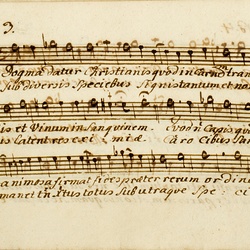 3.
Dogma datur Christianis quod in Carnē tran
Sub diversis Speciebus Signis tantum et non
is et Vinum in Sanguinem. Quod n̄ Capis quod
us latent res exi miæ. Caro Cibus San
animosa firmat fides præter rerum or Dine
manet tn̄ Xtus totus Sub utraque Spe cie